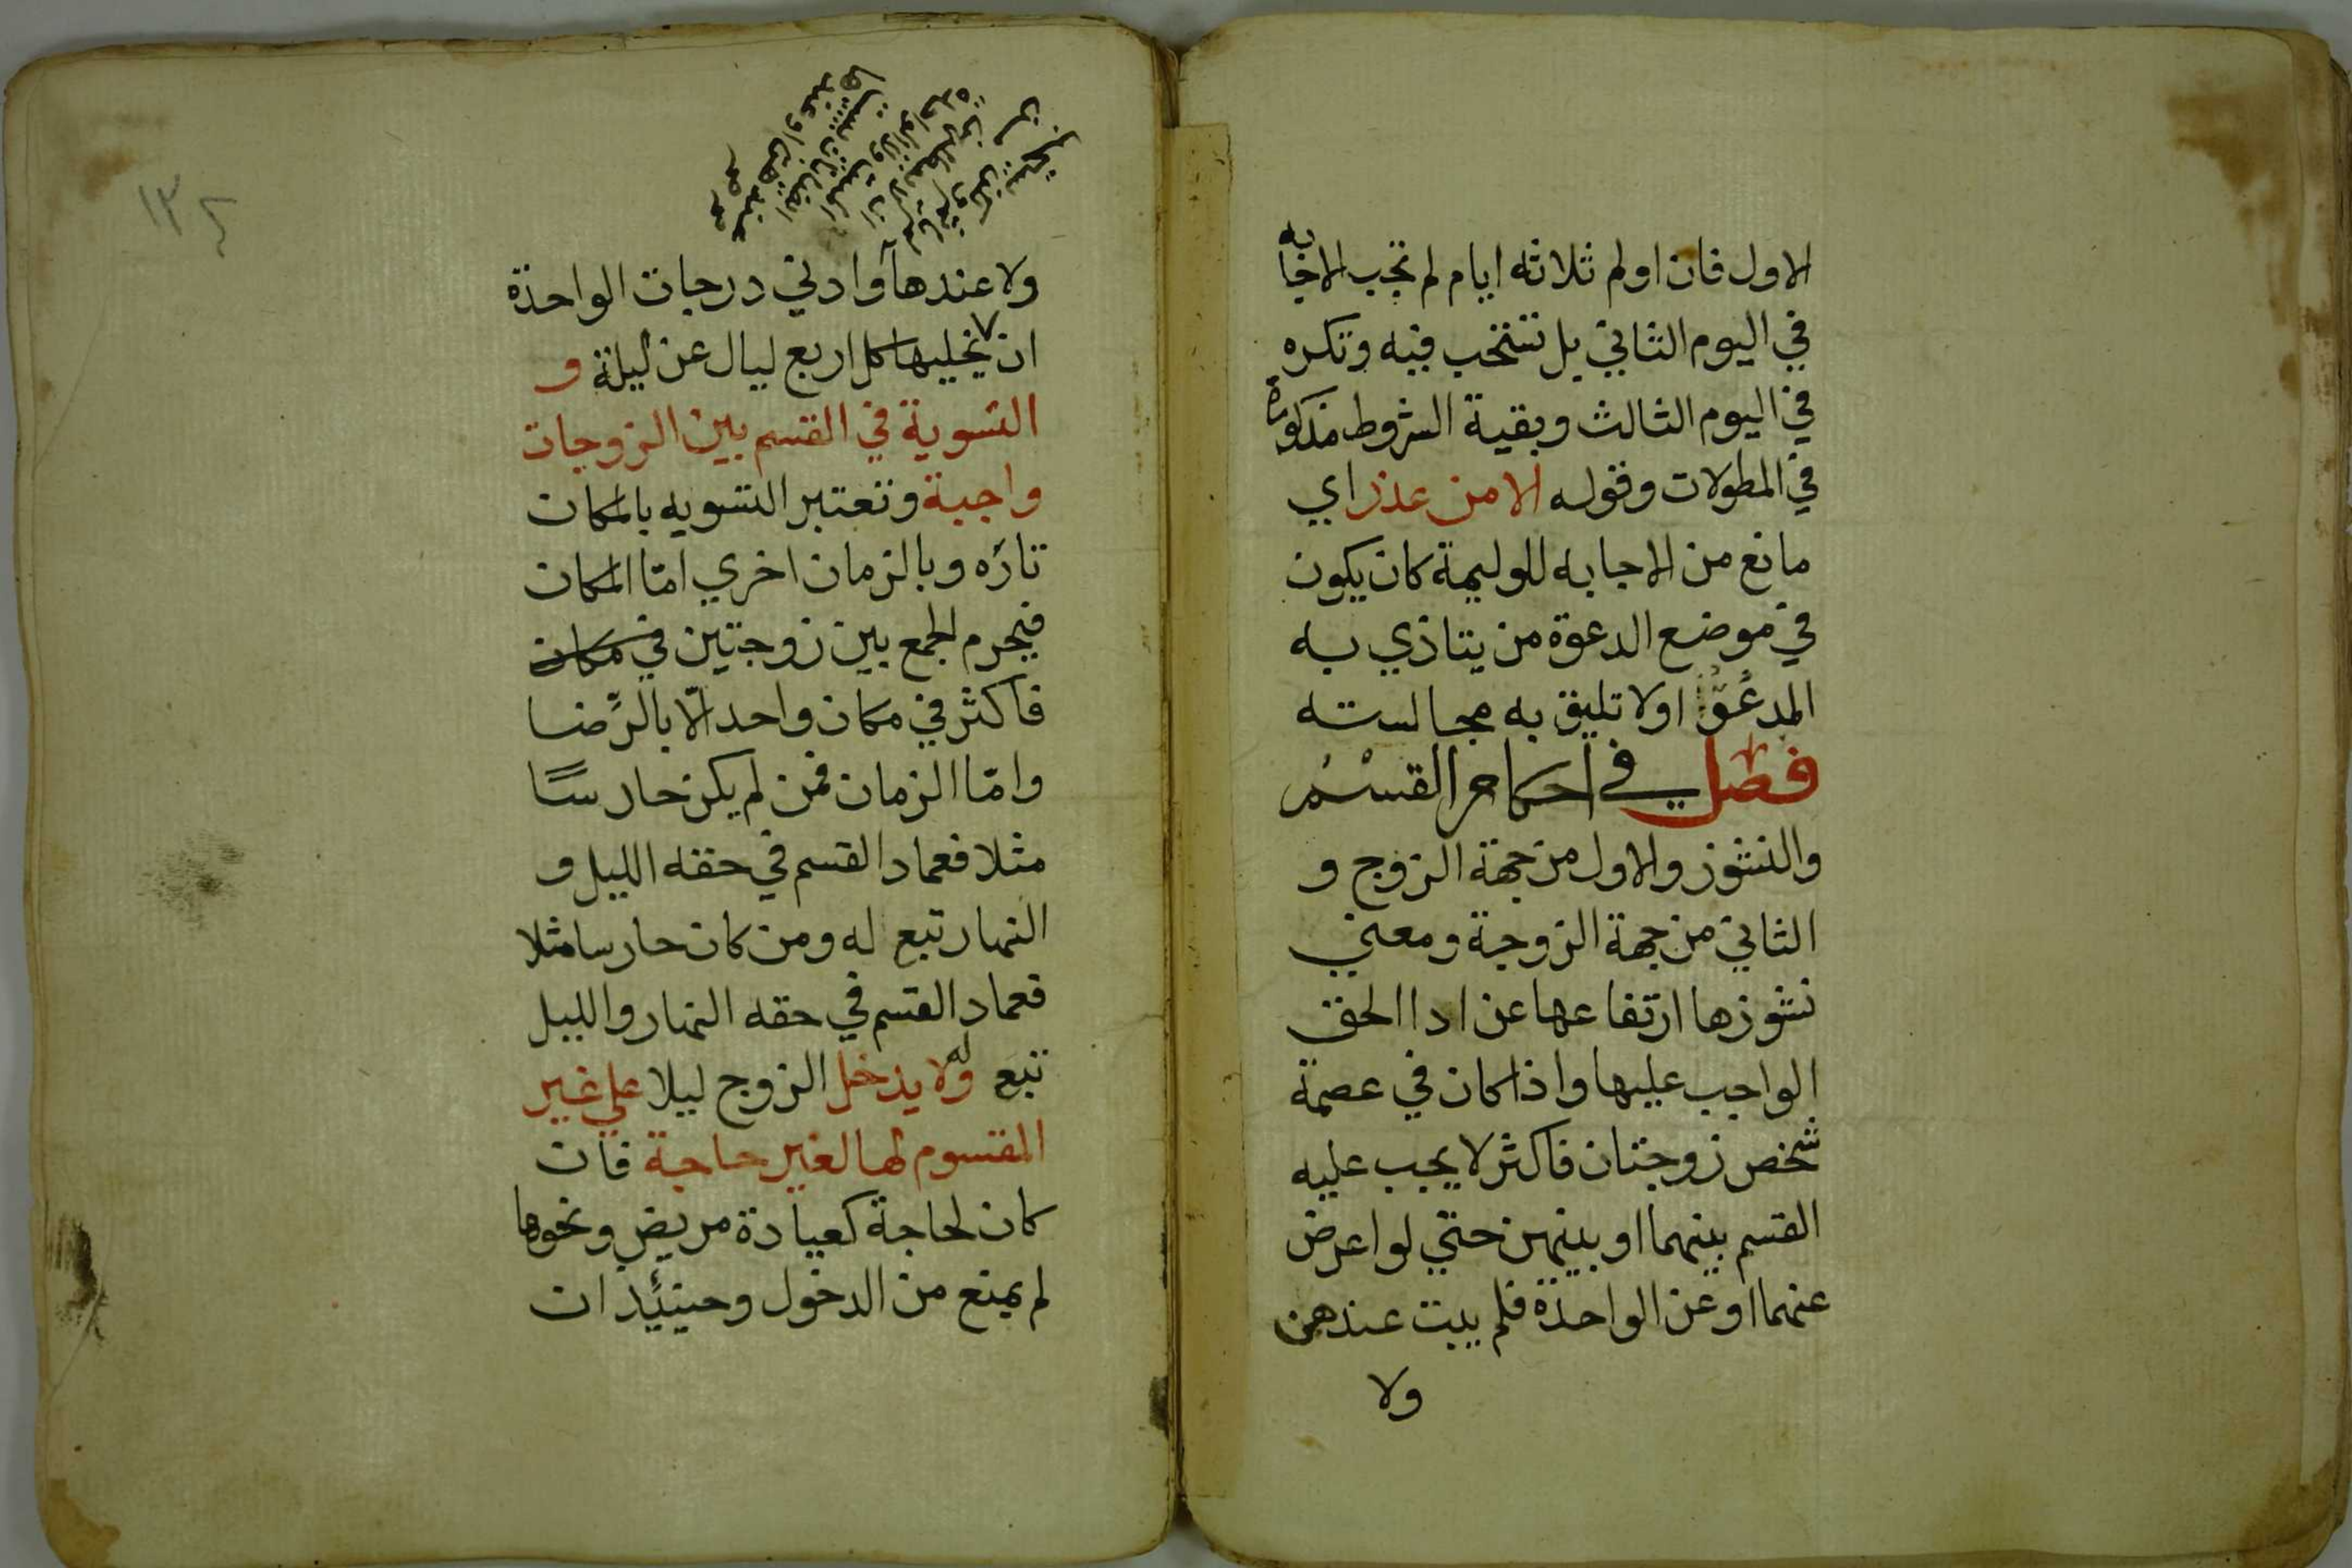 الاول فان اولم ثلاثه ايام لم تجب الاجابه
في اليوم الثاني بل تستحب فيه وتكره
في اليوم الثالث وبقية الشروط مذكورة
في المطولات وقوله الا من عذر اي
مانع من الاجابه للوليمة كان يكون
في موضع الدعوة من يتاذي به
المدعو اولا تليق به مجالسته
فصل في احكام القسم
والنشوز والاول من جهة الزوج و
الثاني من جهة الزوجة ومعني
نشوزها ارتفاعها عن ادا الحق
الواجب عليها واذا كان في عصمة
شخص زوجتان فاكثر لا يجب عليه
القسم بينهما او بينهن حتي لو اعرض
عنهما او عن الواحدة فلم يبت عندهن
ولا
١٣٤
ولا عندها وادني درجات الواحدة
ان لا يخليها كل اربع ليال عن ليلة و
التسوية في القسم بين الزوجات
واجبة وتعتبر التسويه بالمكان
تاره وبالزمان اخري امّا المكان
فيحرم الجمع بين زوجتين في مكان
فاكثر في مكان واحد الّا بالرّضا
وامّا الزمان فمن لم يكن حارسًا
مثلا فعماد القسم في حقه الليل و
النهار تبع له ومن كان حارسا مثلا
فعماد القسم في حقه النهار والليل
تبع له ولا يدخل الزوج ليلا علي غير
المقسوم لها لغير حاجة فان
كان لحاجة كعيادة مريض ونحوها
لم يمنع من الدخول وحينئذ ان